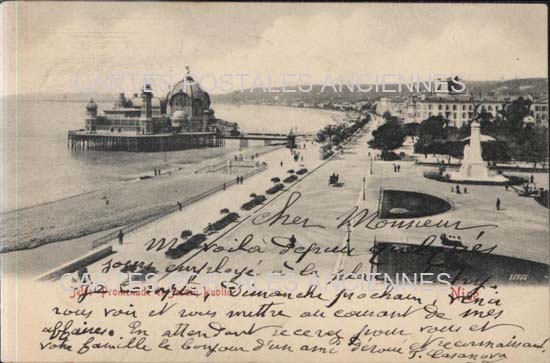 CARTES POSTALES ANCIENNES
CARTES POSTALES ANCIENNES
Cher Monsieur
me voila depuis quelques
jours employé à la préfecture
Jetée Promenade et Jardin Public
Nice
35256
J'espère Dimanche prochain, venir
vous voir et vous mettre au courant de mes
affaires. En attendant recevez pour vous et
votre famille le bonjour d'un ami dévoué et reconnaissant
P. Casanova